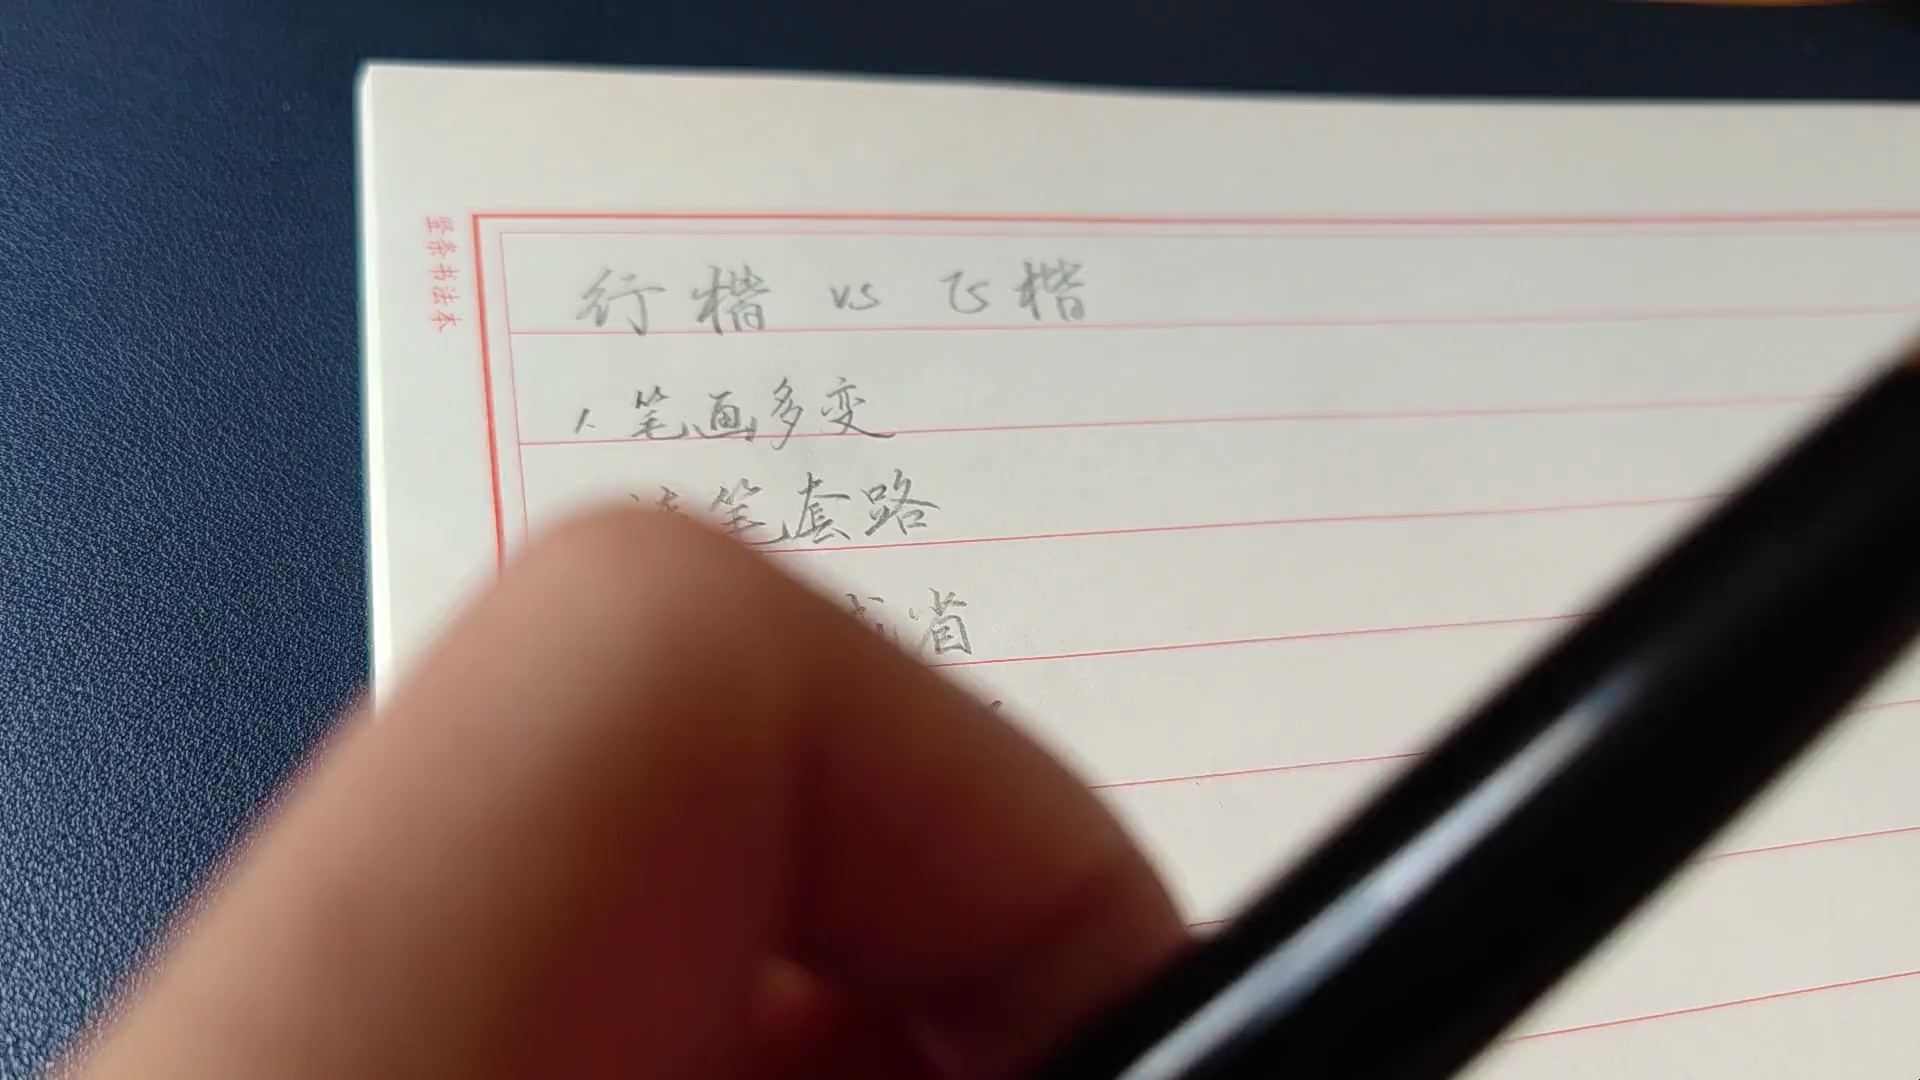 竖条书法本
行楷 vs 飞楷
1. 笔画多变
连笔套路
省